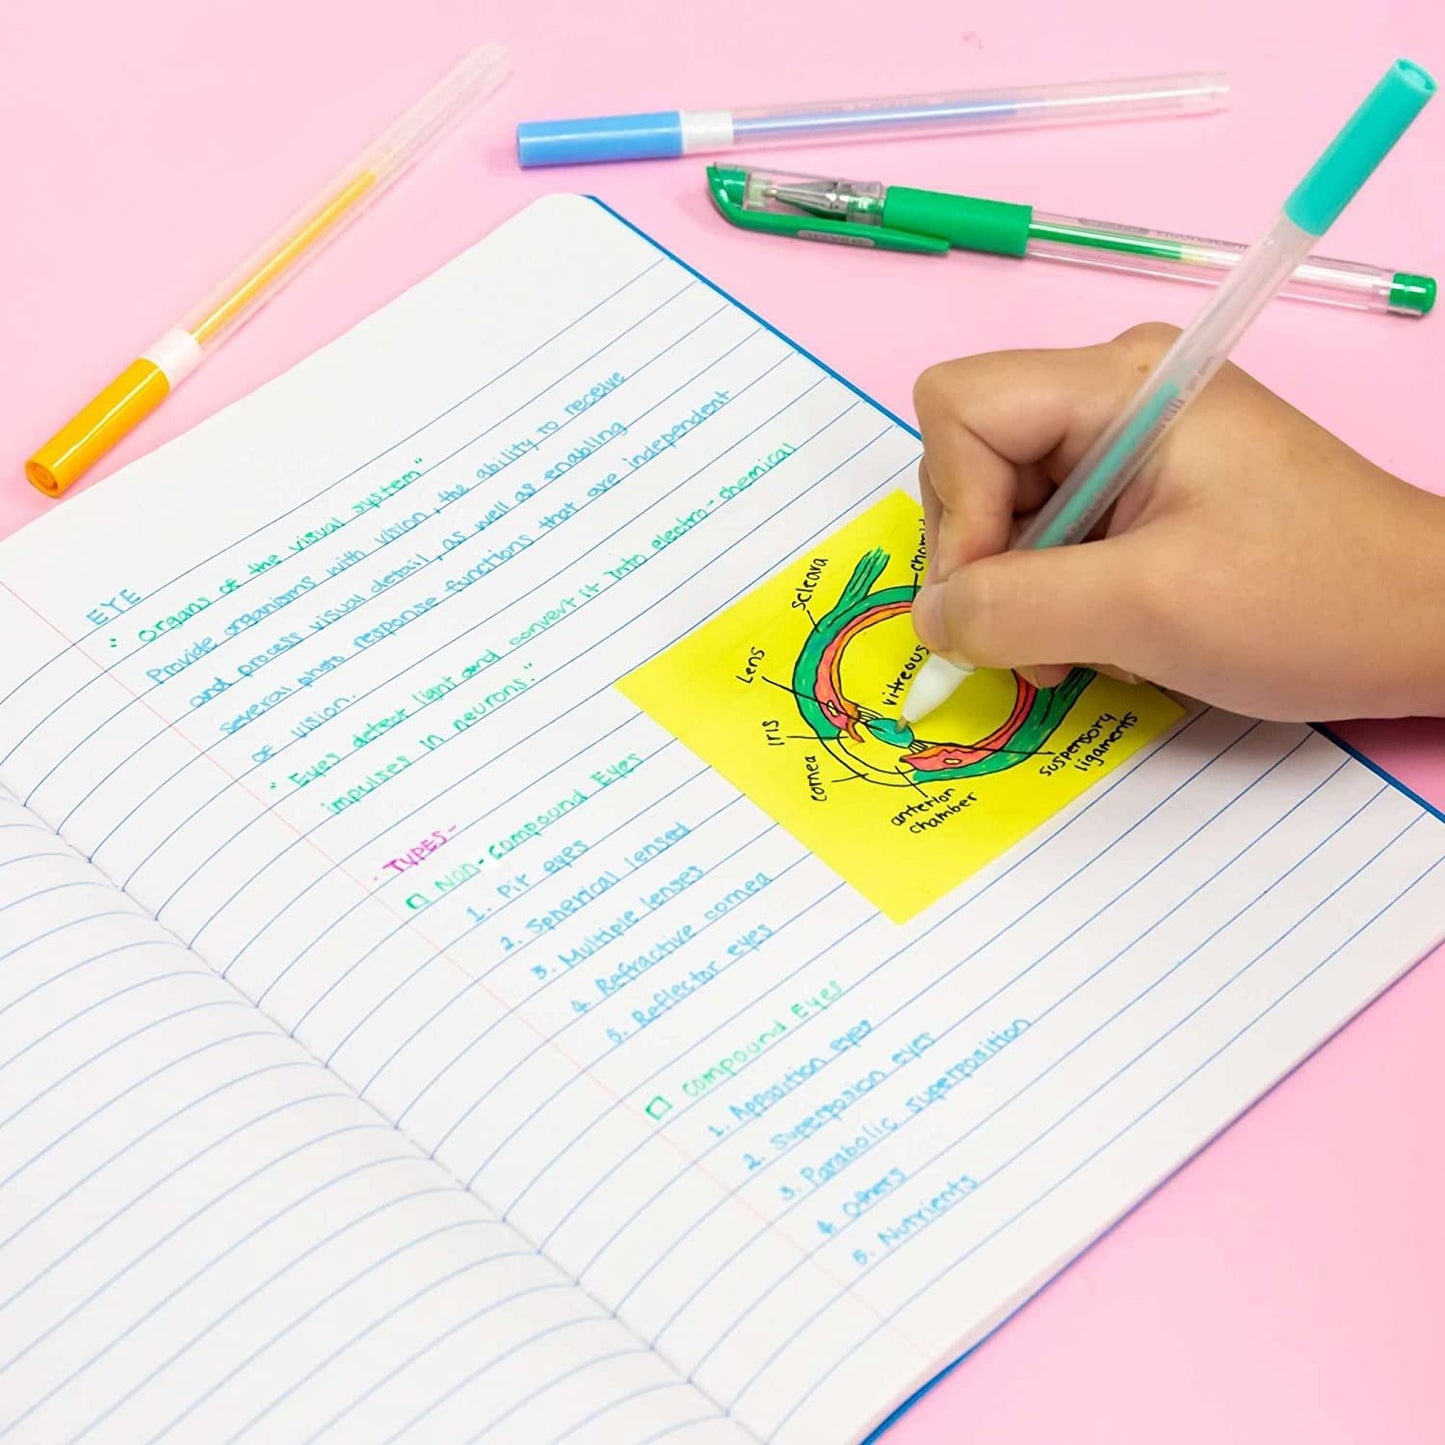 EYE
" Organs of the visual system"
Provide organisms with vision, the ability to receive
and process visual detail, as well as enabling
several photo response functions that are independent
of vision.
" Eyes detect light and convert it into electro-chemical
impulses in neurons."
- TYPES -
Non-Compound Eyes
1. Pit eyes
2. Spherical lensed
3. Multiple lenses
4. Refractive cornea
5. Reflector eyes
Compound Eyes
1. Apposition eyes
2. Superposion eyes
3. Parabolic superposition
4. Others
5. Nutrients
Scleara
Lens
Iris
cornea
vitreous
suspensory
ligaments
anterion
chamber